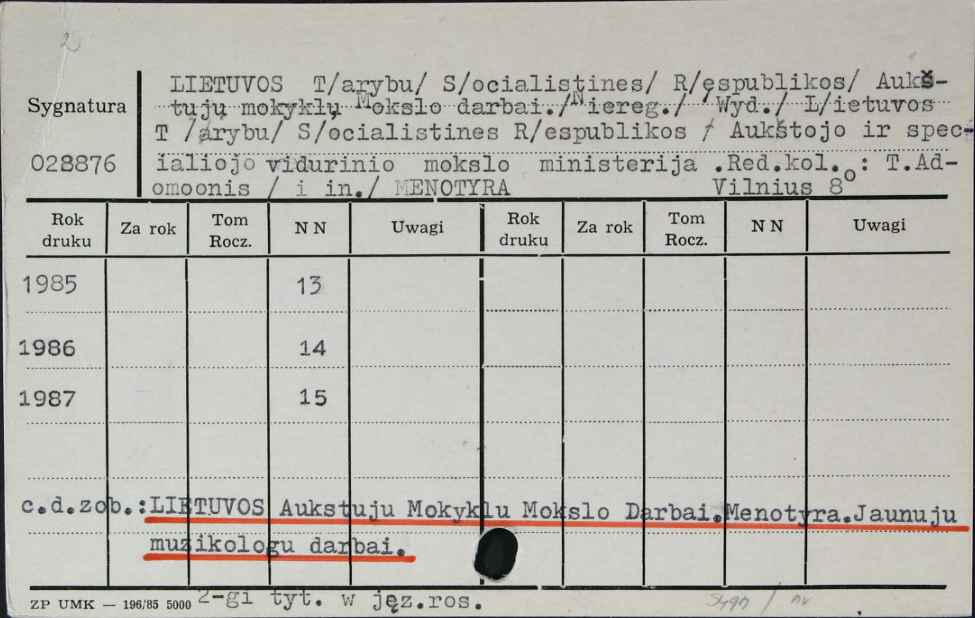 2
LIETUVOS T/arybu/ S/ocialistines/ R/espublikos/ Aukš-
Sygnatura tųjų mokyklų Mokslo darbai./Niereg./ Wyd./ L/ietuvos
T /arybu/ S/ocialistines R/espublikos / Aukštojo ir spec-
028876 ialiojo vidurinio mokslo ministerija .Red.kol.: T.Ad-
omoonis / i in./ MENOTYRA Vilnius 8o
Rok druku Za rok Tom Rocz. N N Uwagi Rok druku Za rok Tom Rocz. N N Uwagi
1985 13
1986 14
1987 15
c.d.zob.:LIETUVOS Aukstuju Mokyklu Mokslo Darbai.Menotyra.Jaunuju
muzikologu darbai.
ZP UMK — 196/85 5000 2-gi tyt. w jęz.ros.